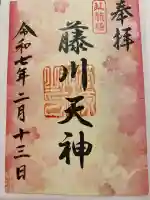 奉拝
藤川天神
令和七年二月十三日